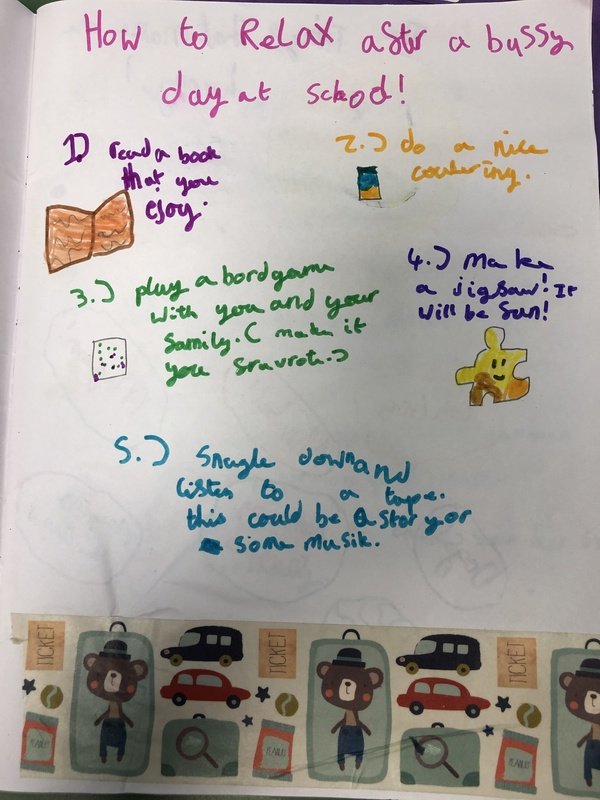 How to Relax aftr a bussy
day at schod!
1.) read a book
that you
ejoy.
2.) do a nice
coulering.
3.) play a bord game
with you and your
family. ( make it
you fravrote.)
4.) Make
a jigsaw! It
will be fun!
5.) Snugle down and
listen to a tape.
this could be a story or
some musik.
TICKET
TICKET
TICKET
PEANUTS
PEANUTS
PEANUTS